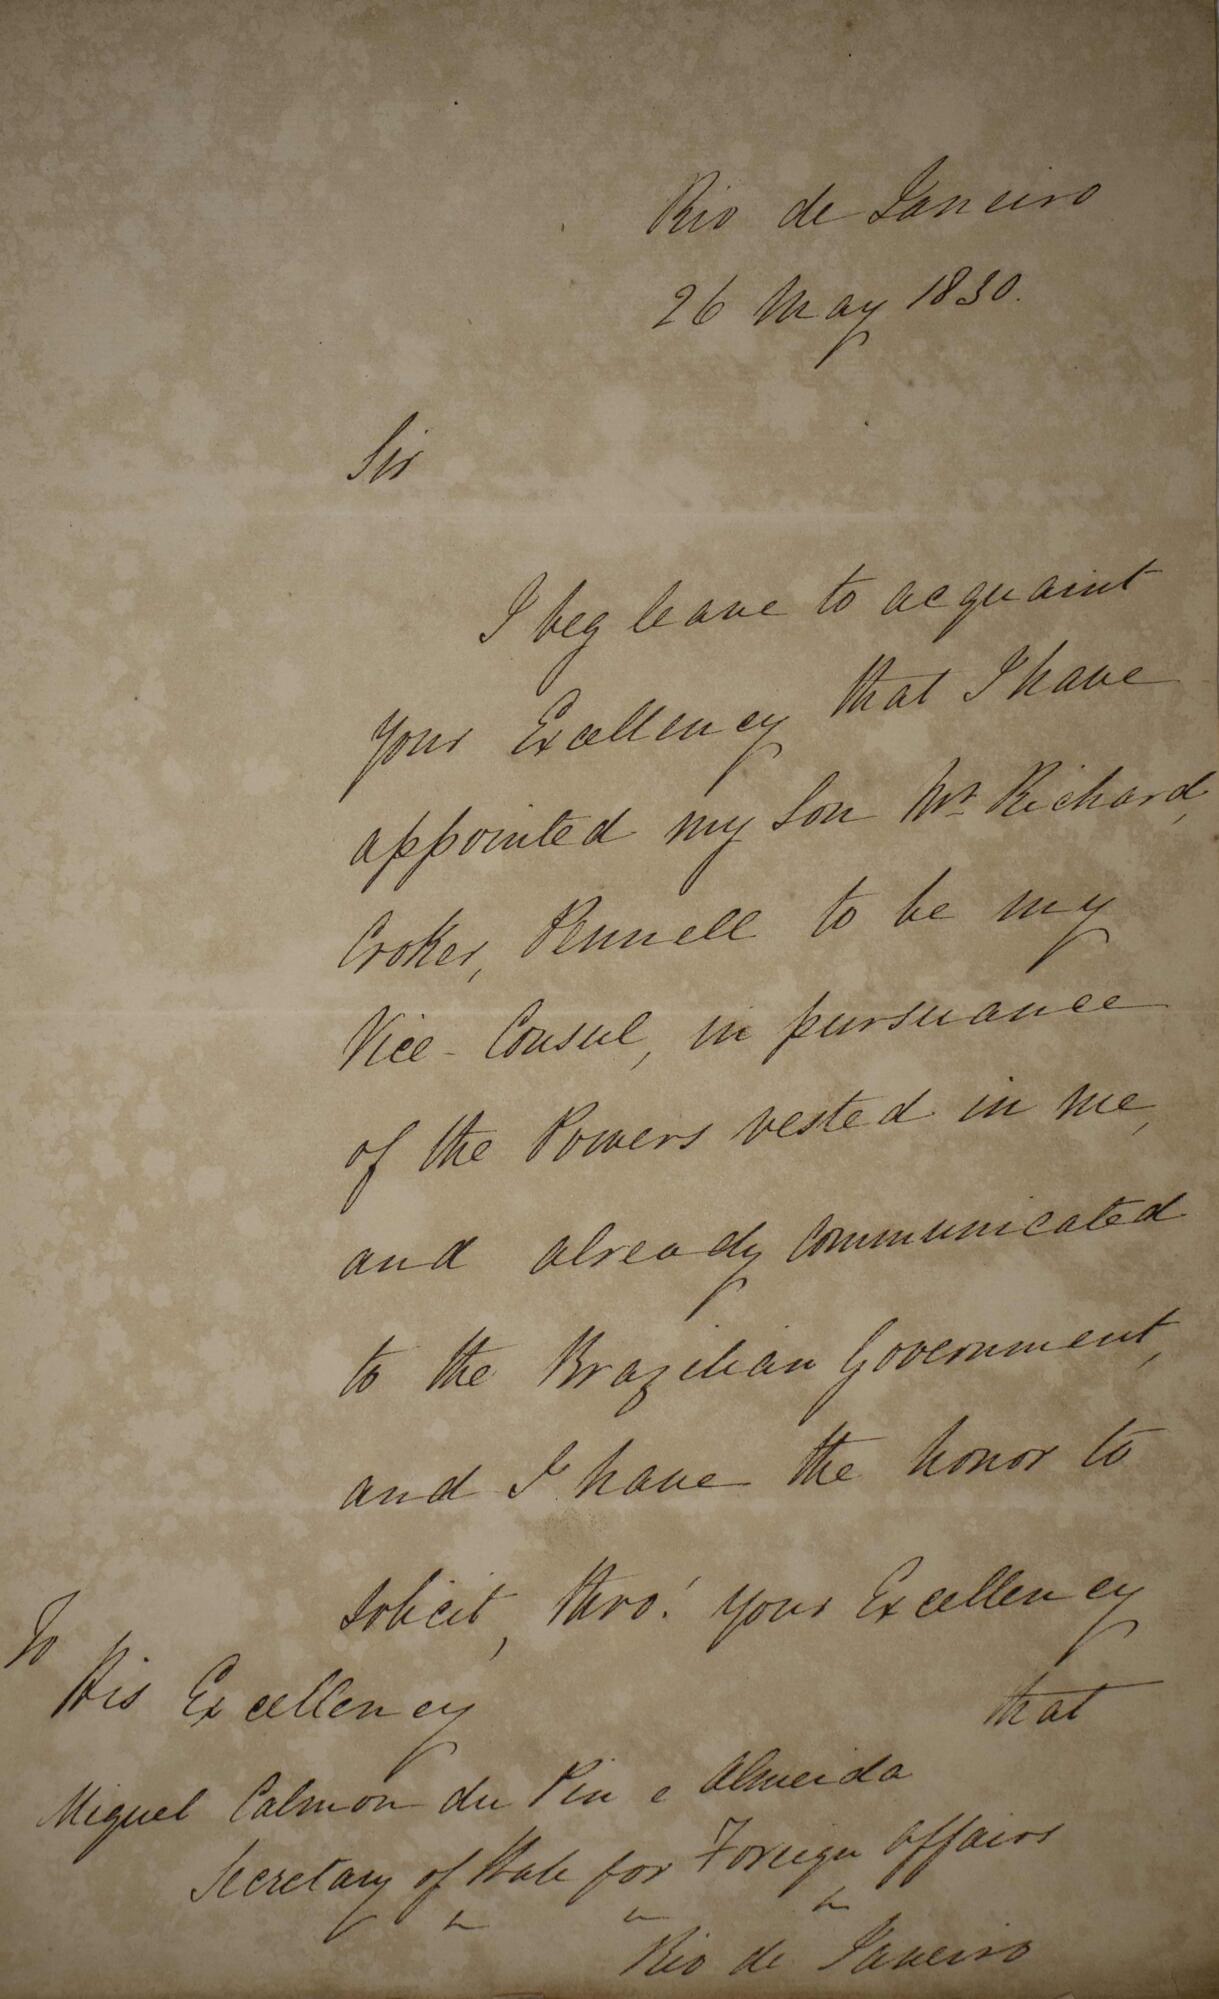 Rio de Janeiro
26 May 1830.
Sir
I beg leave to acquaint
Your Excellency that I have
appointed my Son Mr. Richard,
Croker, Pennell to be my
Vice-Consul, in pursuance
of the Powers vested in me,
and already communicated
to the Brazilian Government,
and I have the honor to
solicit, thro' your Excellency
that
To
His Excellency
Miguel Calmon du Pin e Almeida
Secretary of State for Foreign Affairs
Rio de Janeiro